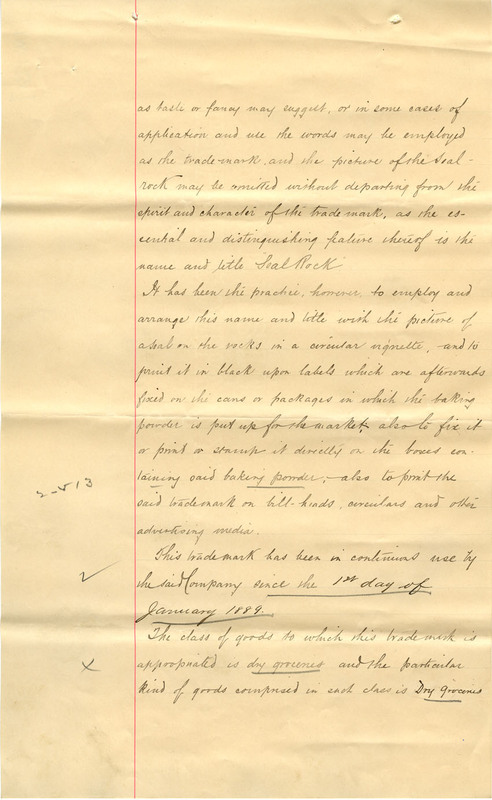 as taste or fancy may suggest, or in some cases of
application and use the words may be employed
as the trade-mark, and the picture of the Seal-
rock may be omitted without departing from the
spirit and character of the trade mark, as the es-
sential and distinguishing feature thereof is the
name and title Seal Rock
It has been the practice, however, to employ and
arrange this name and title with the picture of
a seal on the rocks in a circular vignette, and to
print it in black upon labels which are afterwards
fixed on the cans or packages in which the baking
powder is put up for the market; also to fix it
or print or stamp it directly on the boxes con-
taining said baking powder; also to print the
2-513
said trademark on bill-heads, circulars and other
advertising media.
This trademark has been in continuous use by
the said Company since the 1st day of
January 1889.
The class of goods to which this trade mark is
appropriated is dry groceries and the particular
kind of goods comprised in such class is Dry Groceries